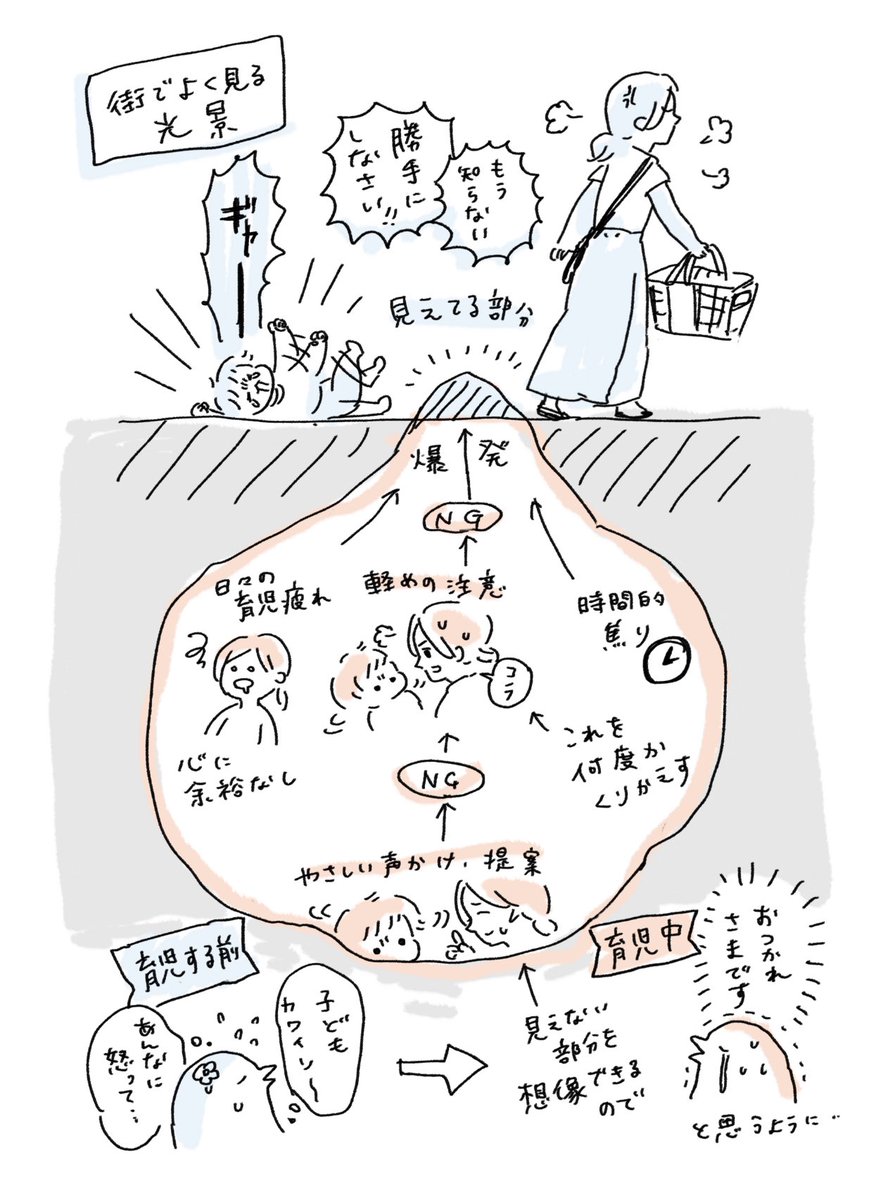 街でよく見る
光景
ギャー
もう
知らない
勝手に
しなさい!!
見えてる部分
爆発
NG
日々の
育児疲れ
軽めの注意
時間的
焦り
コラ
心に
余裕なし
これを
何度か
くりかえす
NG
やさしい声かけ、提案
育児する前
子ども
カワイソ〜
あんなに
怒って…
見えない
部分を
想像できる
ので
育児中
おつかれ
さまです
と思うように…